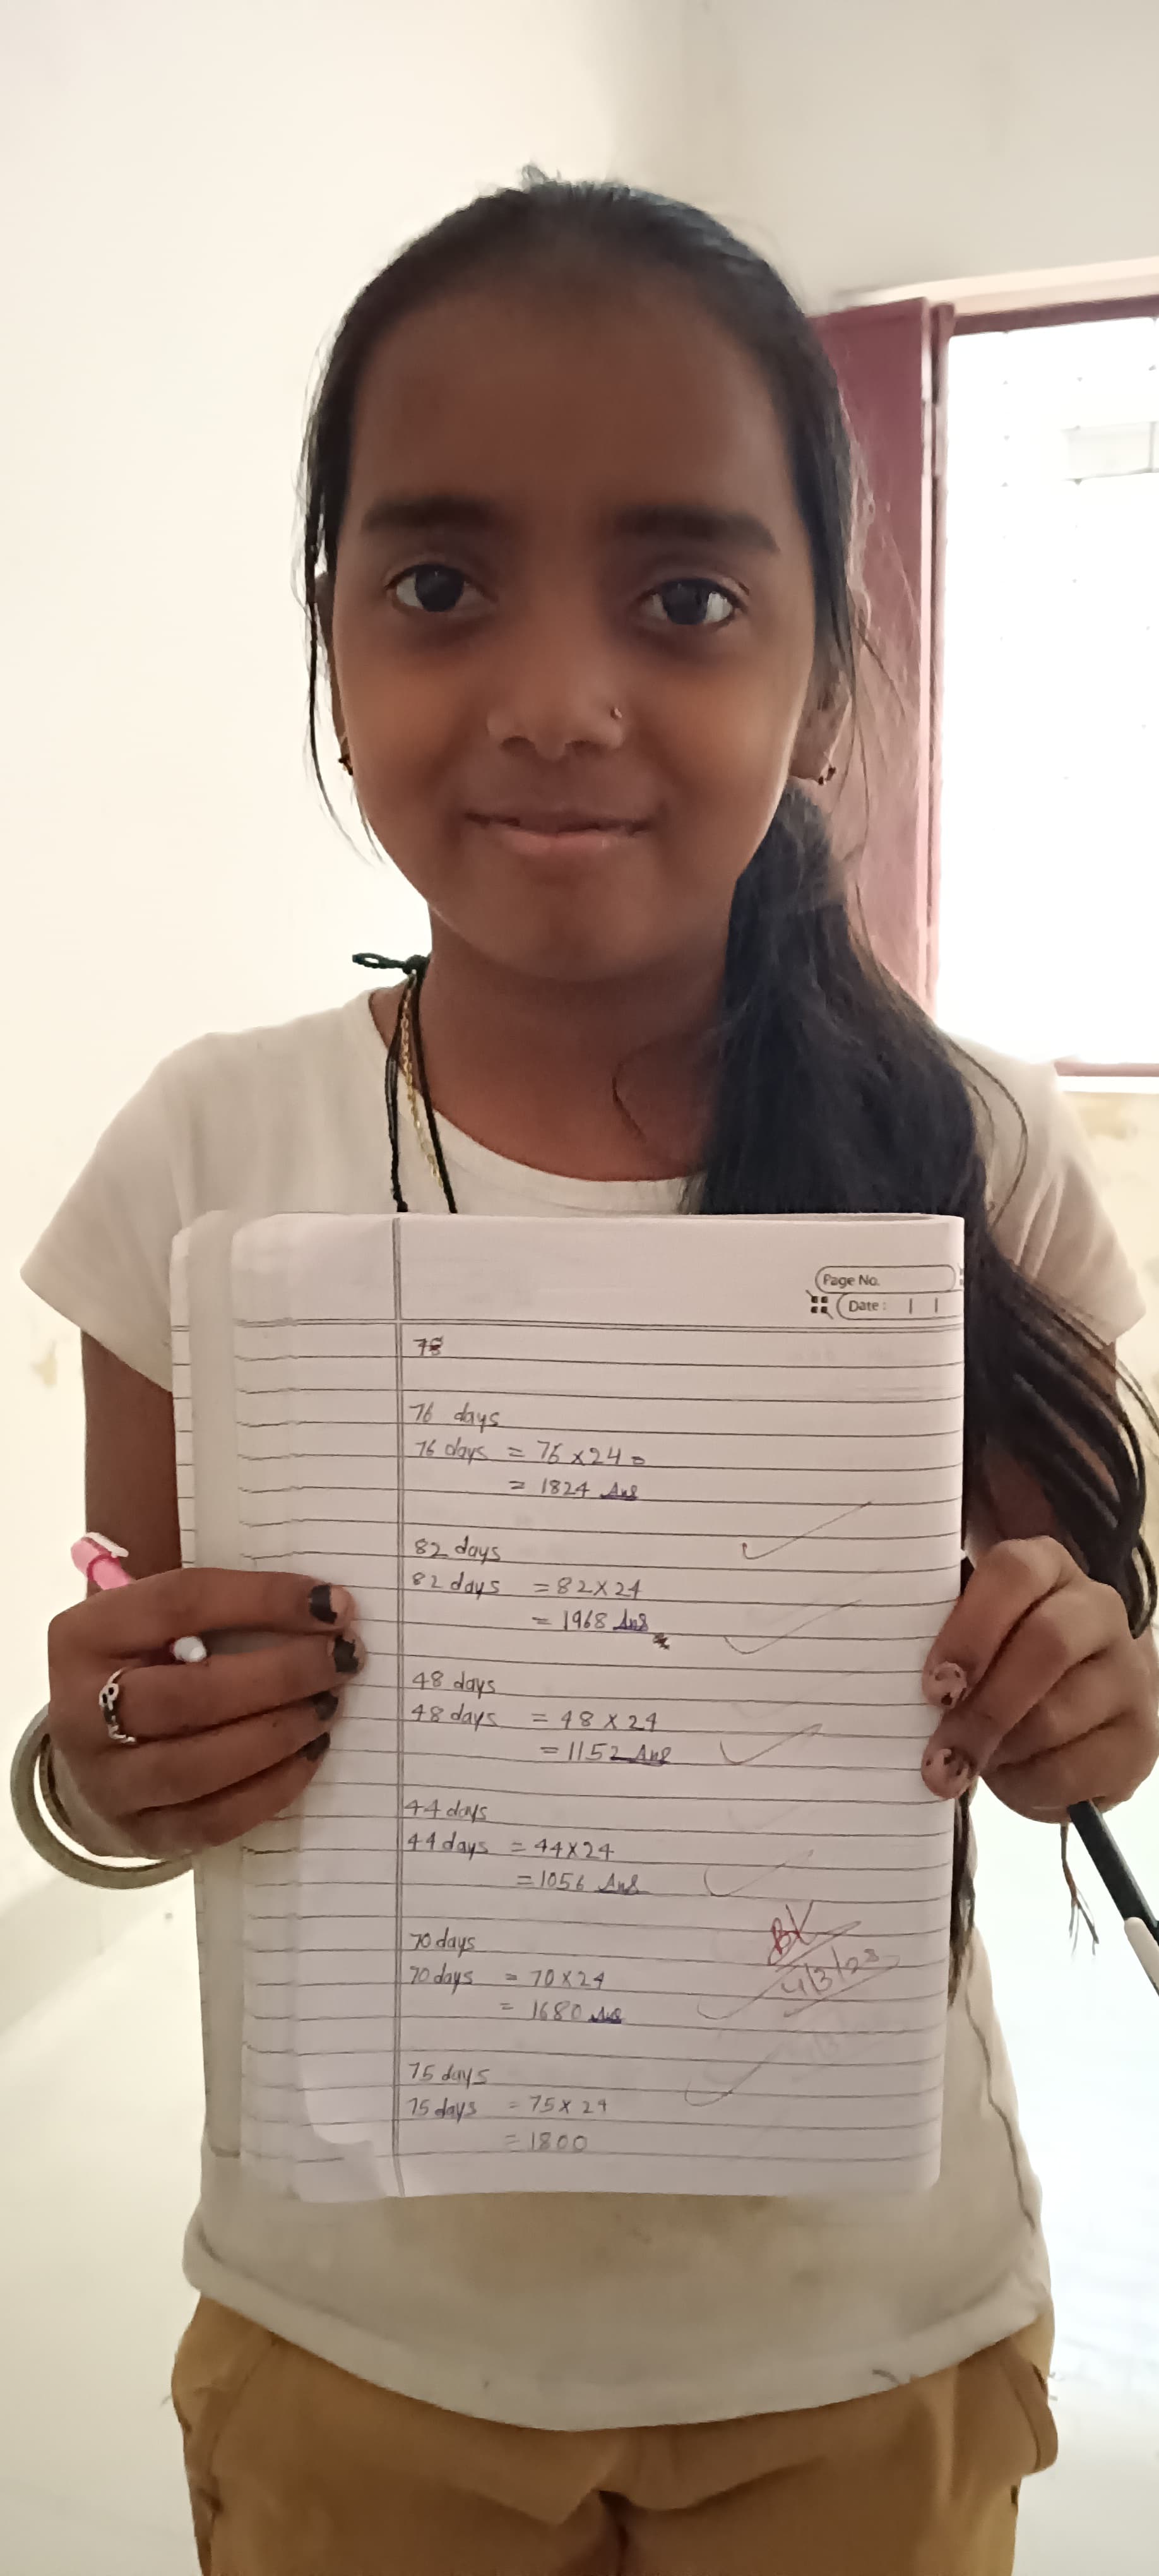 Page No.
Date :
78
76 days
76 days = 76 x 24
= 1824 Ans
82 days
82 days = 82 x 24
= 1968 Ans
48 days
48 days = 48 x 24
= 1152 Ans
44 days
44 days = 44 x 24
= 1056 Ans
70 days
70 days = 70 x 24
= 1680 Ans
4/3/23
75 days
75 days = 75 x 24
= 1800